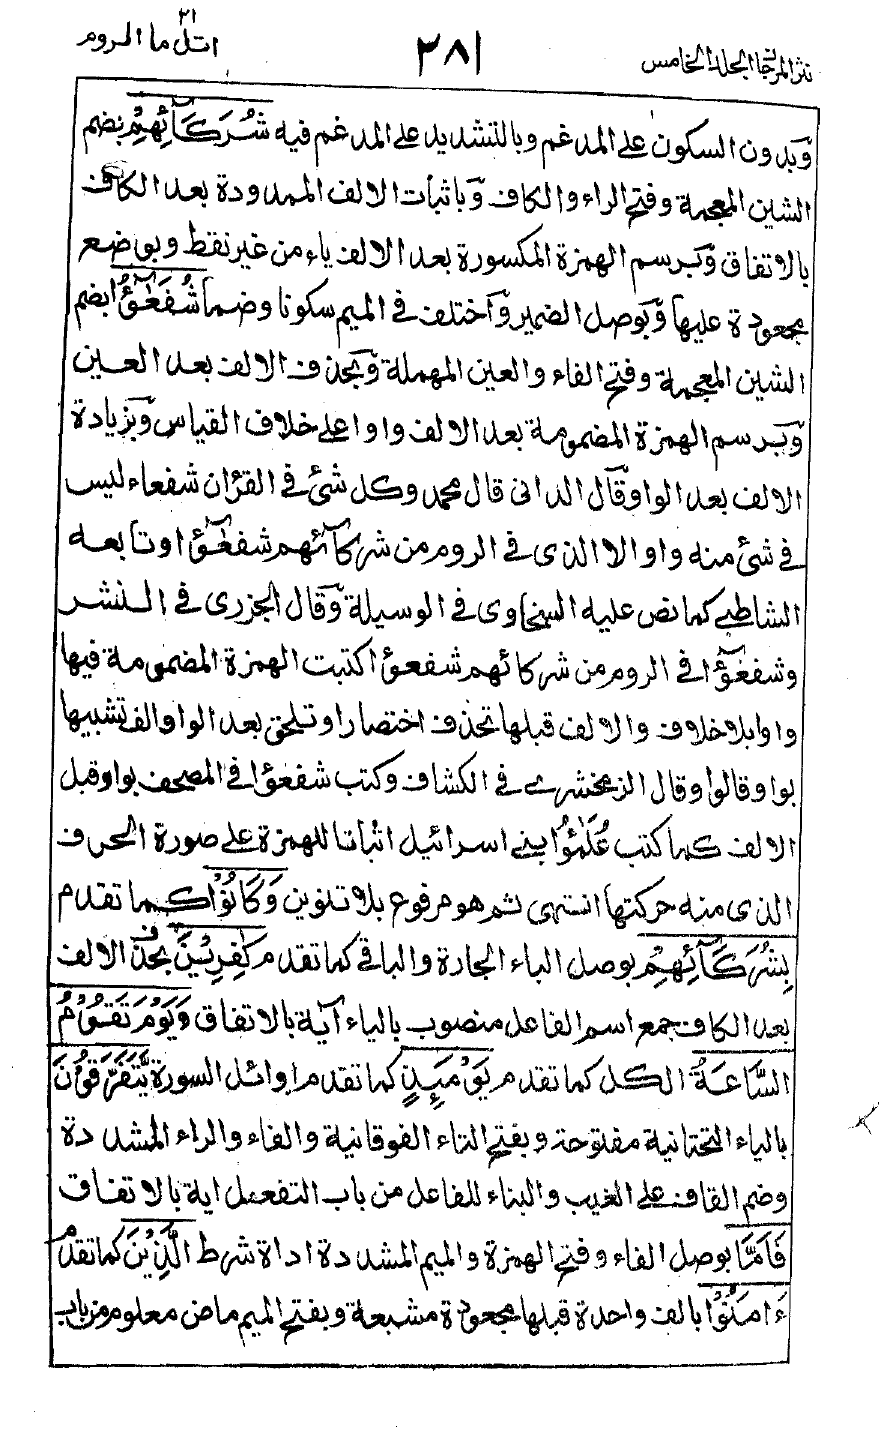 نثر المرجان المجلد الخامس
٢٨١
اتل ما ٢١ الروم
وبدون السكون على المدغم وبالتشديد على المدغم فيه شُرَكَآئِهِمْ بضم
الشين المعجمة وفتح الراء والكاف وباثبات الالف الممدودة بعد الكاف
بالاتفاق وبرسم الهمزة المكسورة بعد الالف ياء من غير نقط وبوضع
مجعودة عليها وبوصل الضمير واختلف فى الميم سكونا وضما شُفَعٰٓؤُا بضم
الشين المعجمة وفتح الفاء والعين المهملة وبحذف الالف بعد العين
وبرسم الهمزة المضمومة بعد الالف واوا على خلاف القياس وبزيادة
الالف بعد الواو وقال الدانى قال محمد وكل شئ فى القرٰان شفعاء ليس
فى شئ منه واو الا الذى فى الروم من شركآئهم شفعٰٓؤا وتابعه
الشاطبى كما نص عليه السخاوى فى الوسيلة وقال الجزرى فى النشر
وشفعٰٓؤا فى الروم من شركائهم شفعؤا كتبت الهمزة المضمومة فيها
واوا بلا خلاف والالف قبلها تحذف اختصارا وتلحق بعد الواو الف تشبيها
بواو قالوا وقال الزمخشرى فى الكشاف وكتب شفعؤا فى المصحف بواو قبل
الالف كما كتب عُلَمٰٓؤُا بنى اسرائيل اثباتا للهمزة على صورة الحرف
الذى منه حركتها انتهى ثم هو مرفوع بلا تنوين وَكَانُوْا كما تقدم
بِشُرَكَآئِهِمْ بوصل الباء الجارة والباقى كما تقدم كٰفِرِيْنَ بحذف الالف
بعد الكاف جمع اسم الفاعل منصوب بالياء اٰية بالاتفاق وَيَوْمَ تَقُوْمُ
السَّاعَةُ الكل كما تقدم يَوْمَئِذٍ كما تقدم اوائل السورة يَّتَفَرَّقُوْنَ
بالياء التحتانية مفتوحة وبفتح التاء الفوقانية والفاء والراء المشددة
وضم القاف على الغيب والبناء للفاعل من باب التفعل اية بالاتفاق
فَاَمَّا بوصل الفاء وفتح الهمزة والميم المشددة اداة شرط الَّذِيْنَ كما تقدم
ءَامَنُوْا بالف واحدة قبلها مجعودة مشبعة وبفتح الميم ماض معلوم من باب